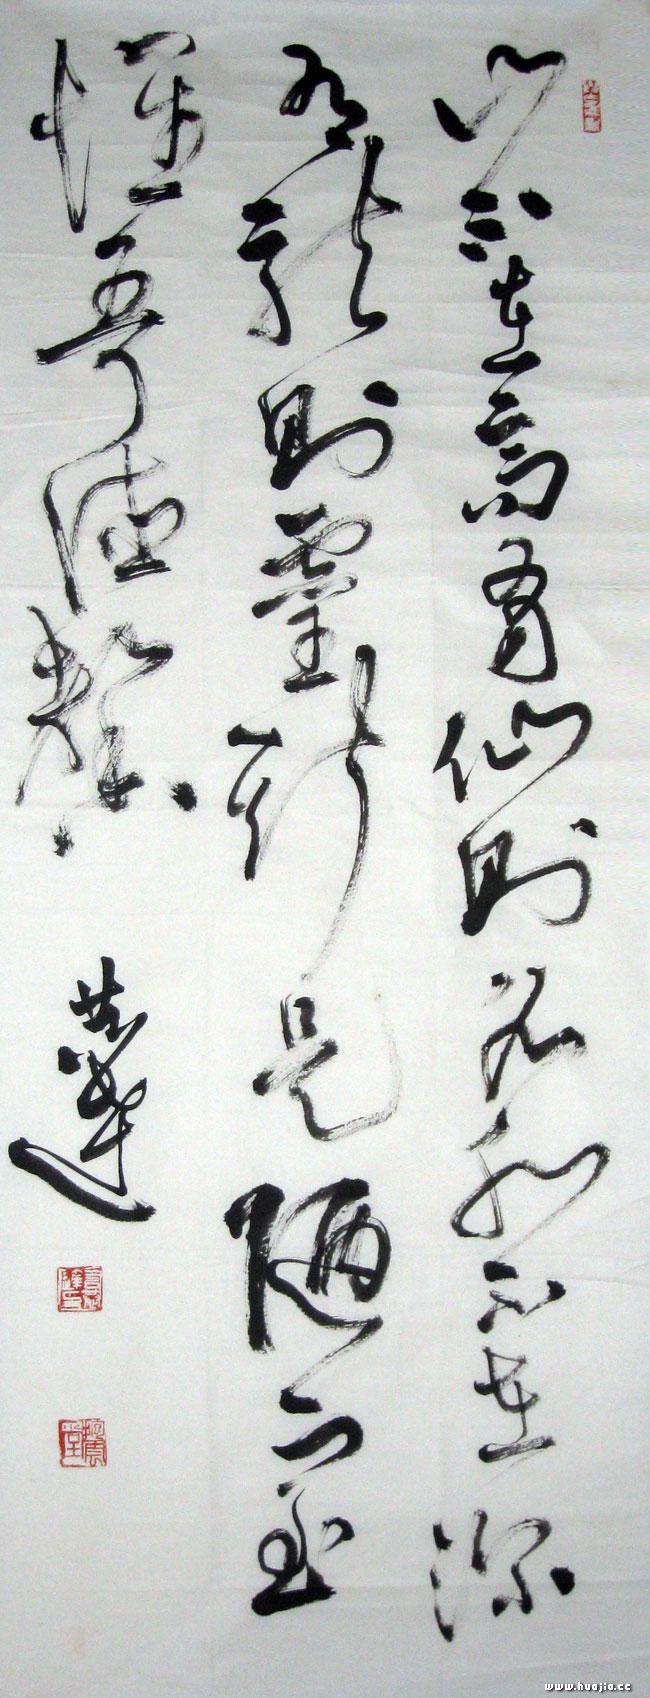 山不在高有仙則名水不在深
有龍則靈斯是陋室
惟吾德馨
www.huajia.cc